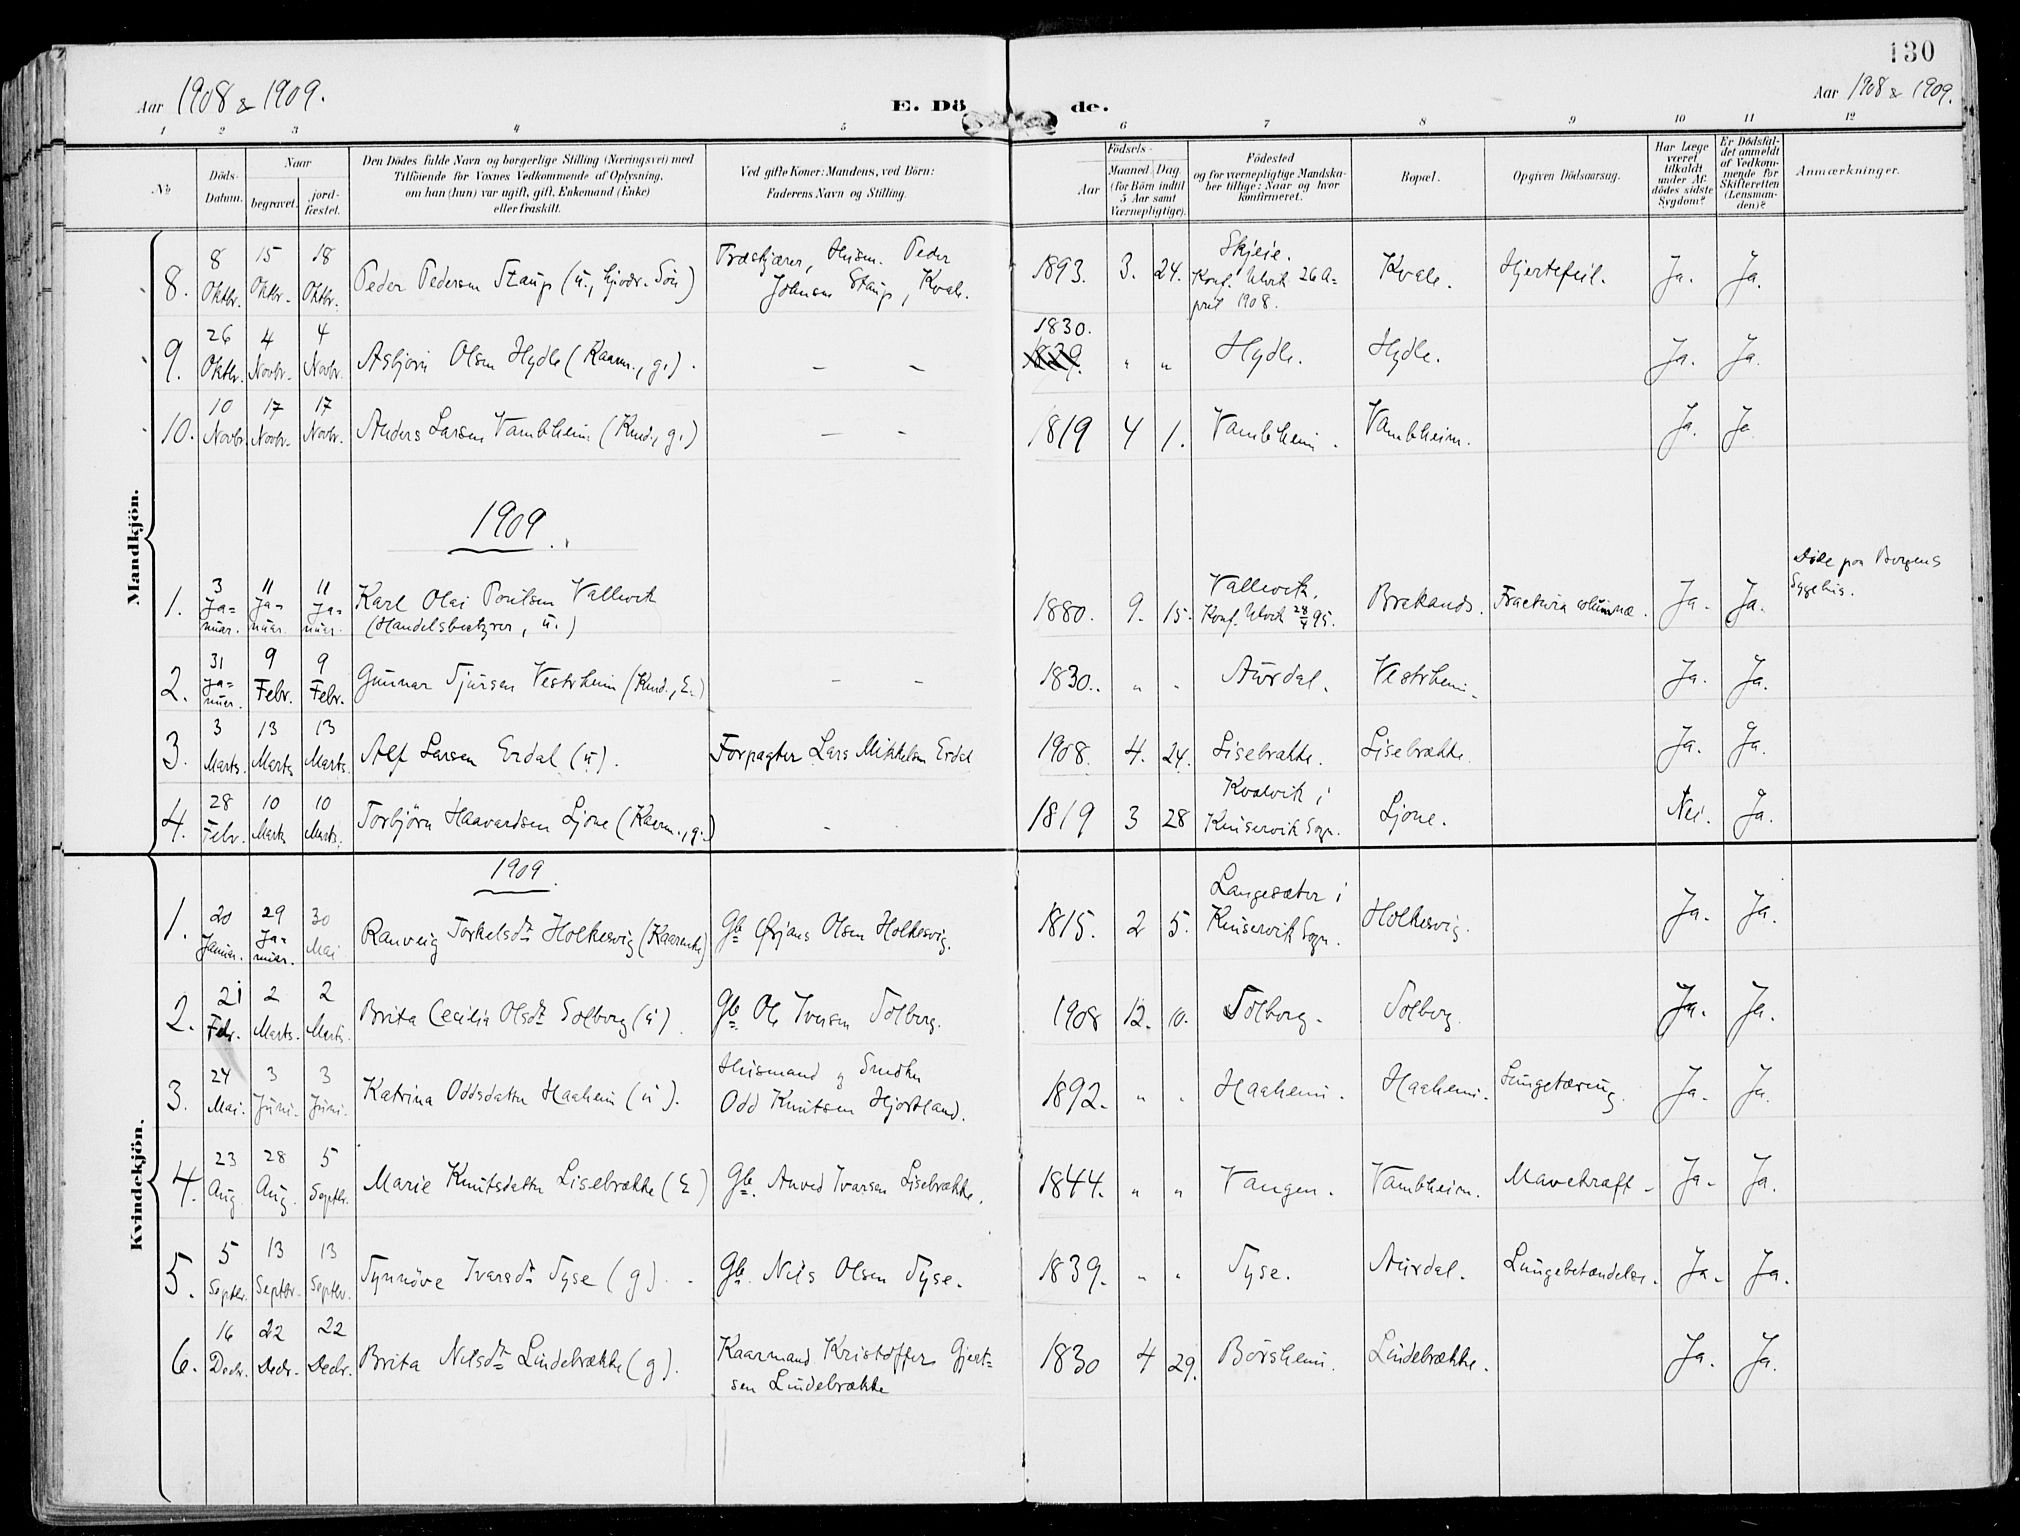 130
Aar 1908 & 1909.
E. Dö de.
Aar 1908 & 1909.
1 2 3 4 5 6 7 8 9 10 11 12
No
Döds-
Datum.
Naar
begravet.
jord-
fæstet.
Den Dödes fulde Navn og borgerlige Stilling (Næringsvei) med
Tilföiende for Voxnes Vedkommende af Oplysning,
om han (hun) var ugift, gift, Enkemand (Enke)
eller fraskilt.
Ved gifte Koner: Mandens, ved Börn:
Faderens Navn og Stilling.
Födsels-
Aar
Maaned Dag
(for Börn indtil
5 Aar samt
Værnepligtige).
Födested
og for værnepligtige Mandska-
ber tillige: Naar og hvor
konfirmeret.
Bopæl.
Opgiven Dödsaarsag.
Har Læge
været
tilkaldt
under Af-
dödes sidste
Sygdom?
Er Dödsfal-
det anmeldt
af Vedkom-
mende for
Skifteretten
(Lensman-
den)?
Anmærkninger.
Mandkjön.
8. 8 Oktbr. 15 Oktbr. 18 Oktbr. Peder Pedersen Staup (u., Son) Husm. Peder
Johnsen Staup, Kvale. 1893. 3. 24. Skjeie.
Konf. Ulvik 26 A=
pril 1908. Kvale. Hjertefeil. Ja. Ja.
9. 26 Oktbr. 4 Novbr. 4 Novbr. Asbjørn Olsen Hydle (Kaarm., g.). – – 1830.
1829. " " Hydle. Hydle. Ja. Ja.
10. 10 Novbr. 17 Novbr. 17 Novbr. Anders Larsen Vambheim (Kmd., g.) – – 1819 4 1. Vambheim. Vambheim. Ja. Ja
1909.
1. 3 Ja=
nuar. 11 Ja=
nuar. 11 Ja=
nuar. Karl Olai Poulsen Vallevik
(Handelsbestyrer, u.) 1880. 9. 15. Vallevik.
Konf. Ulvik 28/4 95. Brekands. Fractura columnæ. Ja. Ja. Døde paa Bergens
Sygehus.
2. 31 Ja=
nuar. 9 Febr. 9 Febr. Gunnar Sjursen Vestrheim (Kmd., E.) – – 1830. " " Aurdal. Vestrheim. Ja. Ja.
3. 3 Marts. 13 Marts 13 Marts. Alf Larsen Erdal (u). Forpagter Lars Mikkelsen Erdal 1908. 4. 24. Lisebrække. Lisebrække. Ja. Ja.
4. 28 Febr. 10 Marts 10 Marts. Torbjørn Haavardsen Ljone (Kaarm., g.) – 1819 3 28 Kvalvik i
Kinservik Sogn. Ljone. Nei. Ja.
Kvindekjön.
1909.
1. 20 Januar. 29 Ja=
nuar. 30 Mai Ranveig Torkelsdtr Holkesvig (Kaarenke) Gb Ørjans Olsen Holkesvig. 1815. 2 5. Langesæter i
Kinservik Sogn. Holkesvig. Ja. Ja.
2. 21 Febr. 2 Marts. 2 Marts. Brita Cecilia Olsdtr Solberg (u). Gb Ole Iversen Solberg. 1908 12. 10. Solberg. Solberg. Ja. Ja.
3. 24 Mai. 3 Juni. 3 Juni. Katrina Oddsdatter Haaheim (u). Husmand og Snedker
Odd Knutsen Hjortland. 1892. " " Haaheim. Haaheim. Lungetæring. Ja. Ja.
4. 23 Aug. 28 Aug. 5 Septbr. Marie Knutsdatter Lisebrække (E) Gb. Anved Ivarsen Lisebrække. 1844. " " Vangen. Vambheim. Mavekræft. Ja. Ja.
5. 5 Septbr. 13 Septbr. 13 Septbr. Synnöve Ivarsdtr Syse (g). Gb. Nils Olsen Syse. 1839. " " Syse. Aurdal. Lungebetændelse. Ja. Ja.
6. 16 Decbr. 22 Decbr. 22 Decbr. Brita Nilsdtr Lindebrække (g). Kaarmand Kristoffer Gjert=
sen Lindebrække 1830 4 29. Börsheim. Lindebrække. Ja. Ja.